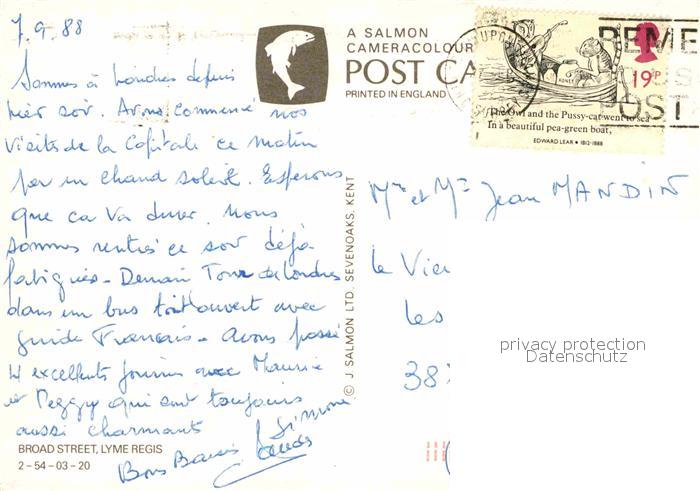 7.9.88
Sommes à Londres depuis
hier soir. Avons commencé nos
visites de la Capitale ce matin
par un chaud soleil. Esperons
que ca va durer. Nous
sommes rentrés ce soir déja
fatigués - Demain Tour de Londres
dans un bus toit ouvert avec
guide Francais - avons passé
4 excellents jours avec Maurice
et Peggy qui sont toujours
aussi charmants
Bons Baisers
Simone
BROAD STREET, LYME REGIS
2-54-03-20
A SALMON
CAMERACOLOUR
POST CA
PRINTED IN ENGLAND
© J. SALMON LTD., SEVENOAKS, KENT
19P
The Owl and the Pussy-cat went to sea
In a beautiful pea-green boat,
EDWARD LEAR • 1812-1888
REME
POST
Mr et Me Jean MANDIN
le Vie
les
38
privacy protection
Datenschutz